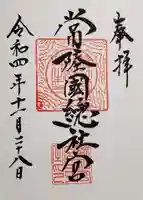 奉拝
常陸國總社宮
令和四年十二月二十八日